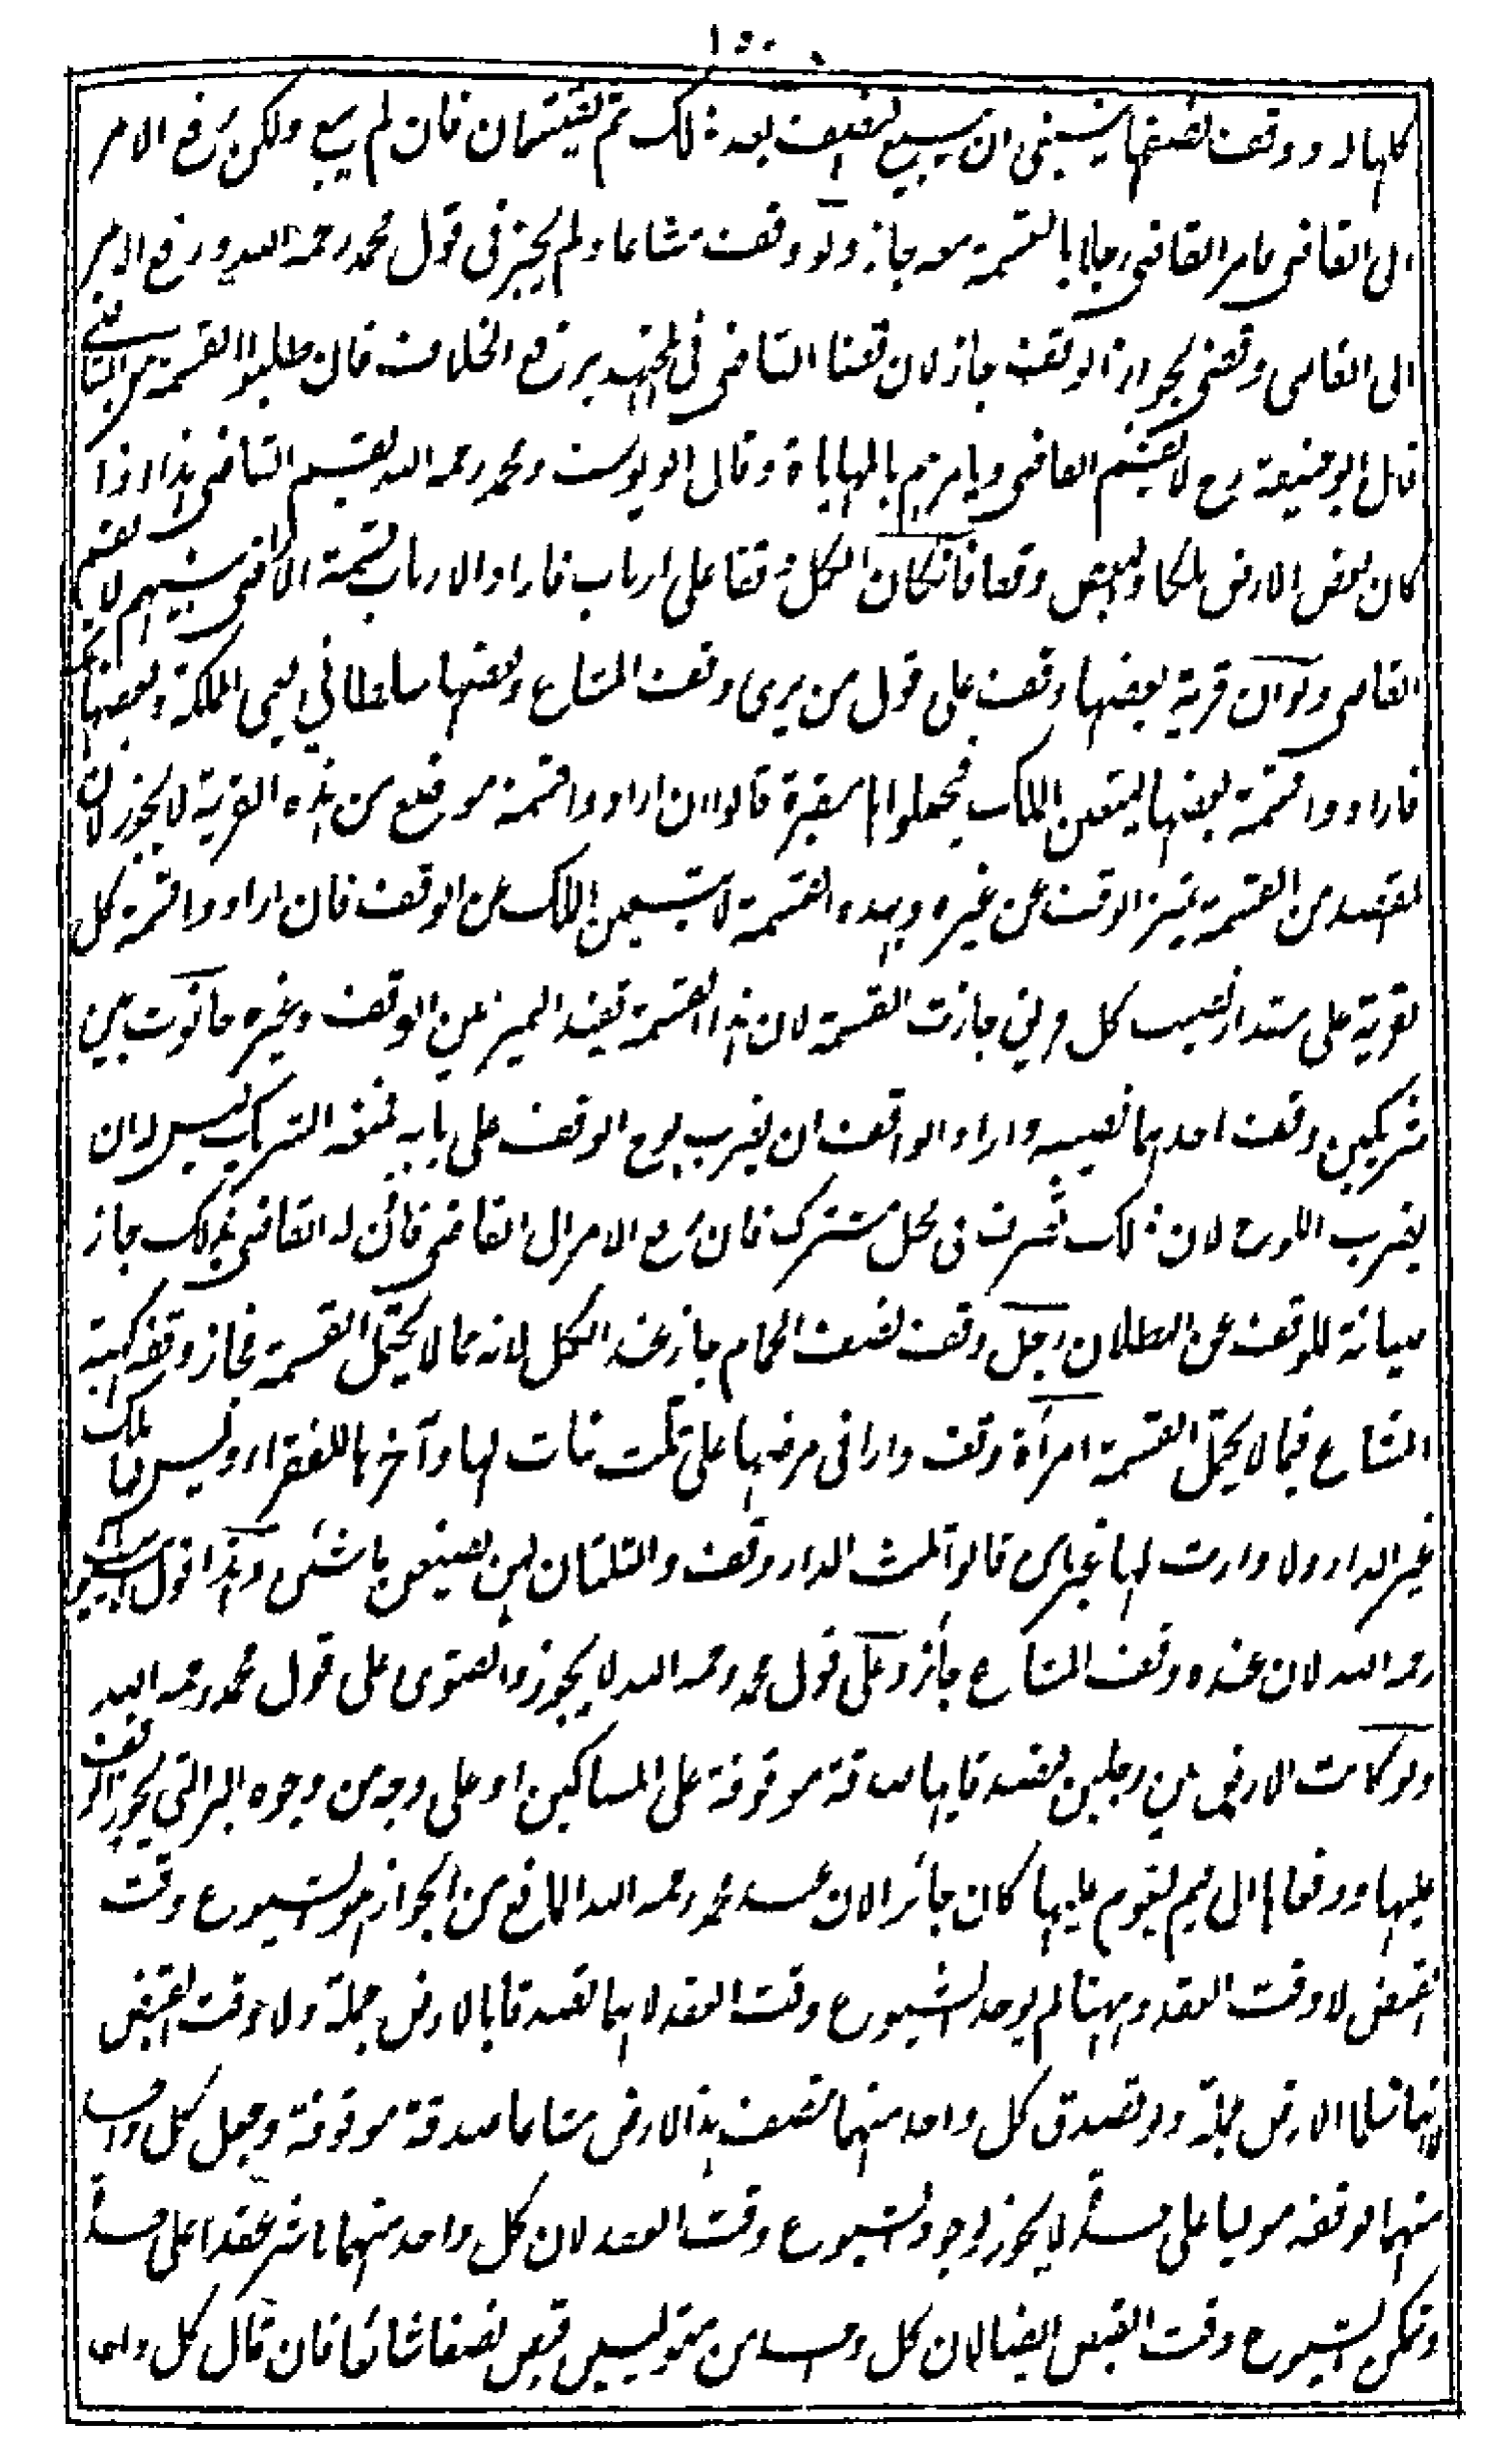 ١٥٠
كلها له ووقف نصفها ينبغي ان يبيع نصيبه بعد ذلك ثم يقتسمان فان لم يبع ولكن رفع الامر
الى القاضي فامر القاضي رجلا بالقسمة معه جاز ولو وقف مشاعا ولم يجز في قول محمد رحمه الله ورفع الامر
الى القاضي وقضى بجواز الوقف جاز لان قضاء القاضي في المجتهد يرفع الخلاف فان طلبوا القسمة من القاضي
قال ابو حنيفة رح لا يقسم القاضي ويامرهم بالمهاياة وقال ابو يوسف ومحمد رحمه الله يقسم القاضي هذا اذا
كان بعض الارض ملكا وبعض وقفا فان كان الكل وقفا على ارباب فاراد الارباب قسمة الاراضي بينهم لا يقسم
القاضي ولو ان قرية بعضها وقف على قول من يرى وقف المشاع وبعضها سلطاني يعني المملكة وبعضها
فارادوا قسمة بعضها ليتعين الملك فيجعلوا مقبرة قالوا ان ارادوا قسمة موضع من هذه القرية لا يجوز لان
المقصد من القسمة تميز الوقف عن غيره وبهذه القسمة لا يتبين الملك عن الوقف فان ارادوا قسمة كل
القرية على مقدار نصيب كل فريق جازت القسمة لان هذا القسمة تفيد التميز بين الوقف وغيره حانوت بين
شريكين وقف احدهما نصيبه واراد الواقف ان يضرب لوح الوقف على بابه فمنعه الشريك ليس له ان
يضرب اللوح لان ذلك تصرف في محل مشترك فان رفع الامر الى القاضي فاذن له القاضي بذلك جاز
صيانة للوقف عن البطلان رجل وقف نصف الحمام جاز عند الكل لانه مما لا يحتمل القسمة فجاز وقفه كهبة
المشاع فيما لا يحتمل القسمة امرأة وقفت دارا في مرضها على ثلث بنات لها وآخرها للفقراء وليس لها ملك
غير الدار ولا وارث لها غيرهن قالوا ثلث الدار وقف والثلثان لهن يصنعن ما شئن وهذا قول ابي يوسف
رحمه الله لان عنده وقف المشاع جائز وعلى قول محمد رحمه الله لا يجوز والفتوى على قول محمد رحمه الله
ولو كانت الارض بين رجلين فتصدقا بها صدقة موقوفة على المساكين او على وجه من وجوه البر التي يجوز الوقف
عليها ودفعاها الى قيم يقوم عليها كان جائزا لان عند محمد رحمه الله المانع من الجواز هو الشيوع وقت
القبض لا وقت العقد وههنا لم يوجد الشيوع وقت العقد لانهما تصدقا بالارض جملة ولا وقت القبض
لانهما سلما الارض جملة ولو تصدق كل واحد منهما بنصف هذا الارض مشاعا صدقة موقوفة وجعل كل واحد
منهما لوقفه موليا على حدة لا يجوز لوجود الشيوع وقت العقد لان كل واحد منهما باشر عقدا على حدة
وتمكن الشيوع وقت القبض ايضا لان كل واحد من متوليين قبض نصفا شائعا فان قال كل واحد